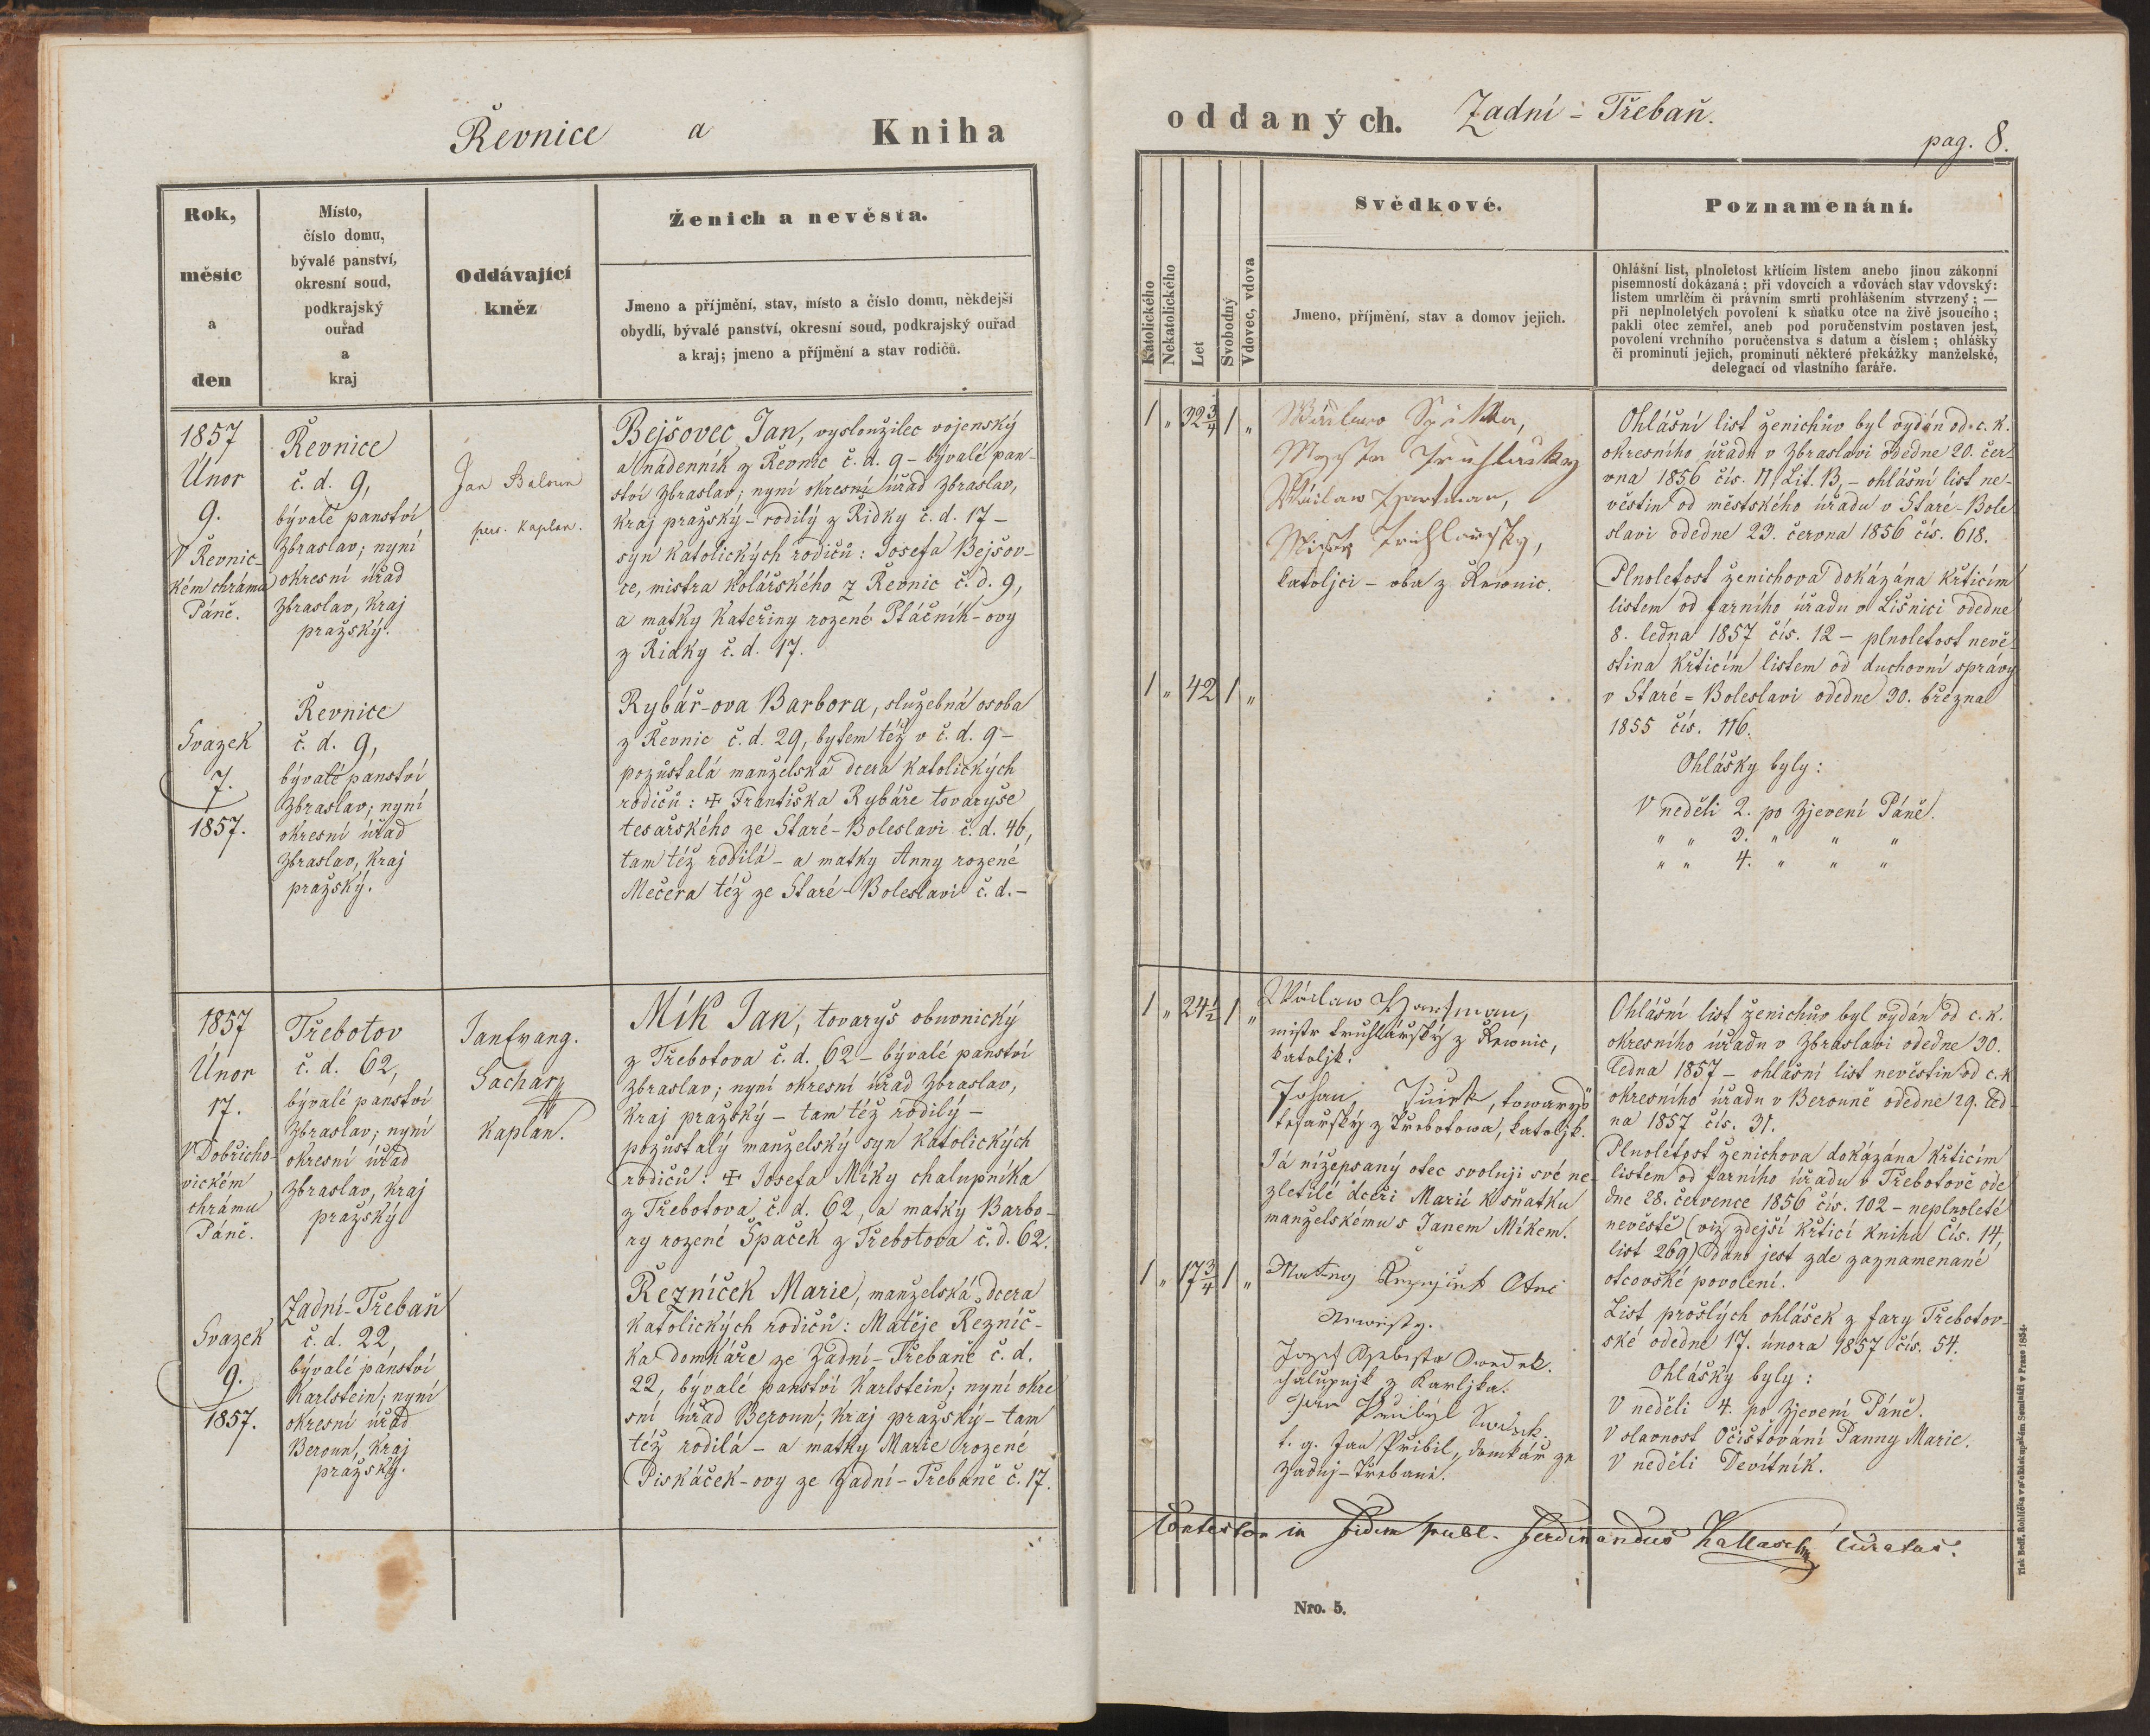 Řevnice a Kniha
Rok,
měsíc
a
den
Místo,
číslo domu,
bývalé panství,
okresní soud,
podkrajský
ouřad
a
kraj
Oddávající
kněz
Ženich a nevěsta.
Jmeno a příjmění, stav, místo a číslo domu, někdejší
obydlí, bývalé panství, okresní soud, podkrajský ouřad
a kraj; jmeno a příjmění a stav rodičů.
1857
Únor
9.
V Řevnic-
kém chrámu
Páně.
Řevnice
č. d. 9,
bývalé panství
Zbraslav; nyní
okresní úřad
Zbraslav, kraj
pražský.
Jan Baloun
per. Kaplan.
Bejšovec Jan, vysloužilec vojenský
a nádenník z Řevnic č. d. 9 – bývalé pan-
ství Zbraslav; nyní okresní úřad Zbraslav,
kraj pražský – rodilý z Řidky č. d. 17 –
syn katolických rodičů: Josefa Bejšov-
ce, mistra kolářského z Řevnic č. d. 9,
a matky Kateřiny rozené Ptáčník-ovy
z Řidky č. d. 17.
Svazek
7.
1857.
Řevnice
č. d. 9,
bývalé panství
Zbraslav; nyní
okresní úřad
Zbraslav, kraj
pražský.
Rybář-ova Barbora, služebná osoba
z Řevnic č. d. 29, bytem též v č. d. 9 –
pozůstalá manželská dcera katolických
rodičů: ✠ Františka Rybáře tovaryše
tesařského ze Staré-Boleslavi č. d. 46,
tam též rodilá – a matky Anny rozené
Mečera též ze Staré-Boleslavi č. d. –
1857
Únor
17.
V Dobřicho-
vickém
chrámu
Páně.
Třebotov
č. d. 62,
bývalé panství
Zbraslav; nyní
okresní úřad
Zbraslav, kraj
pražský
Jan Evang.
Sachar
Kaplan.
Mík Jan, tovaryš obuvnický
z Třebotova č. d. 62 – bývalé panství
Zbraslav; nyní okresní úřad Zbraslav,
kraj pražský – tam též rodilý –
pozůstalý manželský syn katolických
rodičů: ✠ Josefa Míky chalupníka
z Třebotova č. d. 62, a matky Barbo-
ry rozené Špaček z Třebotova č. d. 62.
Svazek
9.
1857.
Zadní-Třebaň
č. d. 22
bývalé panství
Karlstein; nyní
okresní úřad
Beroun, kraj
pražský.
Řezníček Marie, manželská dcera
katolických rodičů: Matěje Řezníč-
ka domkáře ze Zadní-Třebaně č. d.
22, bývalé panství Karlstein; nyní okre
sní úřad Beroun, kraj pražský – tam
též rodilá – a matky Marie rozené
Piskáček-ovy ze Zadní-Třebaně č. 17.
oddaných. Zadní-Třebaň.
pag. 8.
Katolického
Nekatolického
Let
Svobodný
Vdovec, vdova
Svědkové.
Jmeno, příjmění, stav a domov jejich.
Poznamenání.
Ohlášní list, plnoletost křtícím listem anebo jinou zákonní
písemností dokázaná; při vdovcích a vdovách stav vdovský:
listem umrlčím či právním smrti prohlášením stvrzený; —
při neplnoletých povolení k sňatku otce na živě jsoucího;
pakli otec zemřel, aneb pod poručenstvím postaven jest,
povolení vrchního poručenstva s datum a číslem; ohlášky
či prominutí jejich, prominutí některé překážky manželské,
delegací od vlastního faráře.
1 „ 32 3/4 1 „
Václaw
Václaw Hartman,
katoljci – oba z Řewnic.
Ohlášní list ženichův byl vydán od c. k.
okresního úřadu v Zbraslavi ode dne 20. čer-
vna 1856 čís. 11 Lit. B, – ohlášní list ne-
věstin od městského úřadu v Staré-Bole
slavi ode dne 23. června 1856 čís. 618.
Plnoletost ženichova dokázána křticím
listem od farního úřadu v Lišnici ode dne
8. ledna 1857 čís. 12 – plnoletost nevě-
stina křticím listem od duchovní správy
v Staré-Boleslavi ode dne 30. března
1855 čís. 116.
Ohlášky byly:
V neděli 2. po Zjevení Páně.
„ „ 3. „ „ „
„ „ 4. „ „ „
1 „ 42 1 „
1 „ 24 1/2 1 „
Václaw Hartman,
mistr truhlářský z Řewnic,
katoljk.
Johan, towaryš
tesařský z Třebotowa, katoljk.
Já nížepsaný otec svoluji své ne-
zletilé dceři Marii k sňatku
manželskému s Janem Míkem.
1 „ 17 3/4 1 „
Matěj Řeznjček Otec
Newěsty.
Jozef
chalupnjk z Karljka.
Jan Přibyl Swědek.
t. g. Jan Přibil, domkář ze
Zadnj-Třebaně.
Ohlášní list ženichův byl vydán od c. k.
okresního úřadu v Zbraslavi ode dne 30.
ledna 1857 – ohlášní list nevěstin od c. k
okresního úřadu v Berouně ode dne 29. led-
na 1857 čís. 31.
Plnoletost ženichova dokázána křticím
listem od farního úřadu v Třebotově ode
dne 28. července 1856 čís. 102 – neplnoleté
nevěstě (viz zdejší křticí knihu Čís. 14,
list 269) dáno jest zde zaznamenané
otcovské povolení.
List prošlých ohlášek z fary Třebotov-
ské ode dne 17. února 1857 čís. 54.
Ohlášky byly:
V neděli 4. po Zjevení Páně.
V slavnost Očišťování Panny Marie.
V neděli Devítník.
Contestor in fidem publ. Ferdinandus Curatus.
Nro. 5.